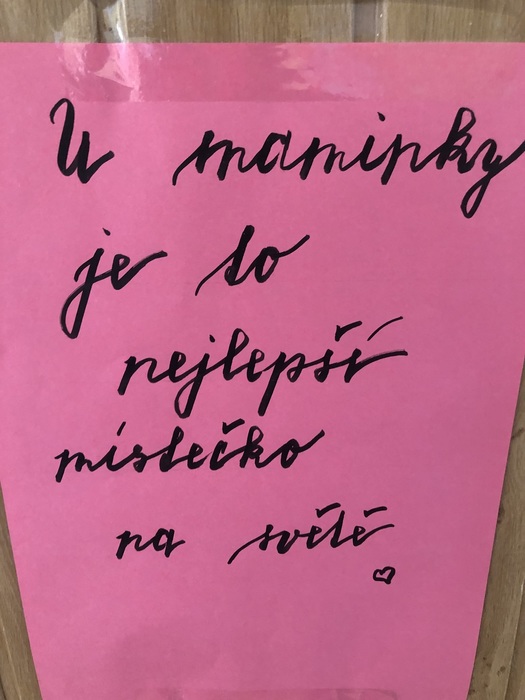 U maminky
je to
nejlepší
místečko
na světě